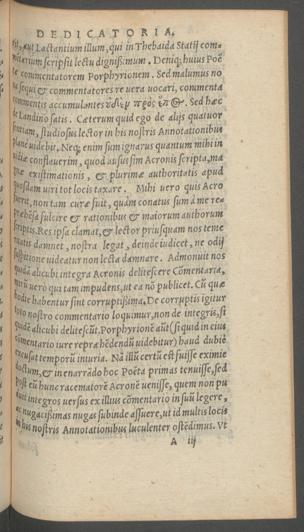 DEDICATORIA.
aut Lactantium illum, qui in Thebaida Statij com-
scripsit lectu dignißimum. Deniq; huius Poë
commentatorem Porphyrionem. Sed malumus no
sequi & commentatores re vera vocari, commenta
commentis accumulantes οὐδὲν πρὸς ἔπ@. Sed hæc
Landino satis. Cæterum quid ego de alijs quatuor
studiosus lector in his nostris Annotationibus
videbit, Neq; enim sum ignarus quantum mihi in
conflauerim, quod ausus sim Acronis scripta, ma
existimationis, & plurimæ authoritatis apud
uiri tot locis taxare. Mihi uero quis Acro
non tam curæ fuit, quàm conatus sum à me re
sulcire & rationibus & maiorum authorum
Res ipsa clamat, & lector priusquam nos teme
damnet, nostra legat, deinde iudicet, ne odij
uideatur non lecta damnare. Admonuit nos
alicubi integra Acronis delitescere Cōmentaria,
uerò uero qui tam impudens, ut ea nō publicet. Cū quæ
habentur sint corruptißima. De corruptis igitur
nostro commentario loquimur, non de integris, si
alicubi delitescūt. Porphyrionē aūt (si quid in eius
iure repræhēdendū uidebitur) haud dubiè
temporū iniuria. Nā illū certū est fuisse eximiè
& in enarrādo hoc Poëta primas tenuisse, sed
eū hunc racematorē Acronē uenisse, quem non pu
integros uersus ex illius cōmentario in suū legere,
nugacißimas nugas subinde assuere, ut id multis locis
his nostris Annotationibus luculenter ostēdimus. Vt
A iij